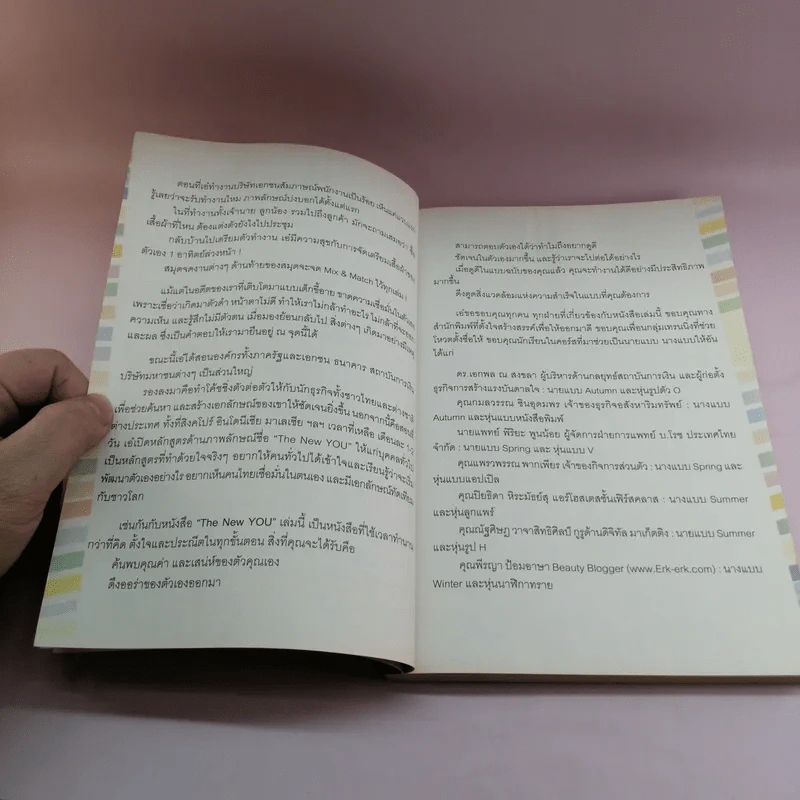 ตอนที่เอ๋ทำงานบริษัทเอกชนสัมภาษณ์พนักงานเป็นร้อย
รู้เลยว่าจะรับทำงานไหม ภาพลักษณ์บ่งบอกได้ตั้งแต่แรก
ในที่ทำงานทั้งเจ้านาย ลูกน้อง รวมไปถึงลูกค้า มักจะถามเสมอว่า ซื้อ
เสื้อผ้าที่ไหน ต้องแต่งตัวยังไงไปประชุม
กลับบ้านไปเตรียมตัวทำงาน เอ๋มีความสุขกับการจัดเตรียมเสื้อผ้าของ
ตัวเอง 1 อาทิตย์ล่วงหน้า !
สมุดจดงานต่างๆ ด้านท้ายของสมุดจะจด Mix & Match ไว้ทุกเล่ม !
แม้แต่ในอดีตของเราที่เติบโตมาแบบเด็กขี้อาย ขาดความเชื่อมั่นในตัวเอง
เพราะเชื่อว่าเกิดมาตัวดำ หน้าตาไม่ดี ทำให้เราไม่กล้าทำอะไร ไม่กล้าที่จะออก
ความเห็น และรู้สึกไม่มีตัวตน เมื่อมองย้อนกลับไป สิ่งต่างๆ เกิดมาอย่างมีเหตุ
และผล ซึ่งเป็นคำตอบให้เรามายืนอยู่ ณ จุดนี้ได้
ขณะนี้เอ๋ได้สอนองค์กรทั้งภาครัฐและเอกชน ธนาคาร สถาบันการเงิน
บริษัทมหาชนต่างๆ เป็นส่วนใหญ่
รองลงมาคือทำโค้ชชิ่งตัวต่อตัวให้กับนักธุรกิจทั้งชาวไทยและต่างชาติ
เพื่อช่วยค้นหา และสร้างเอกลักษณ์ของเขาให้ชัดเจนยิ่งขึ้น นอกจากนี้คือสอนที่
ต่างประเทศ ทั้งที่สิงคโปร์ อินโดนีเซีย มาเลเซีย ฯลฯ เวลาที่เหลือ เดือนละ 1-2
วัน เอ๋เปิดหลักสูตรด้านภาพลักษณ์ชื่อ "The New YOU" ให้แก่บุคคลทั่วไป
เป็นหลักสูตรที่ทำด้วยใจจริงๆ อยากให้คนทั่วไปได้เข้าใจและเรียนรู้ว่าจะเป็น
พัฒนาตัวเองอย่างไร อยากเห็นคนไทยเชื่อมั่นในตนเอง และมีเอกลักษณ์ทัดเทียม
กับชาวโลก
เช่นกันกับหนังสือ "The New YOU" เล่มนี้ เป็นหนังสือที่ใช้เวลาทำนาน
กว่าที่คิด ตั้งใจและประณีตในทุกขั้นตอน สิ่งที่คุณจะได้รับคือ
ค้นพบคุณค่า และเสน่ห์ของตัวคุณเอง
ดึงออร่าของตัวเองออกมา
สามารถตอบตัวเองได้ว่าทำไมถึงอยากดูดี
ชัดเจนในตัวเองมากขึ้น และรู้ว่าเราจะไปต่อได้อย่างไร
เมื่อดูดีในแบบฉบับของคุณแล้ว คุณจะทำงานได้ดีอย่างมีประสิทธิภาพ
มากขึ้น
ดึงดูดสิ่งแวดล้อมแห่งความสำเร็จในแบบที่คุณต้องการ
เอ๋ขอขอบคุณทุกคน ทุกฝ่ายที่เกี่ยวข้องกับหนังสือเล่มนี้ ขอบคุณทาง
สำนักพิมพ์ที่ตั้งใจสร้างสรรค์เพื่อให้ออกมาดี ขอบคุณเพื่อนกลุ่มเทรนนิ่งที่ช่วย
โหวตตั้งชื่อให้ ขอบคุณนักเรียนในคอร์สที่มาช่วยเป็นนายแบบ นางแบบให้อัน
ได้แก่
ดร.เอกพล ณ สงขลา ผู้บริหารด้านกลยุทธ์สถาบันการเงิน และผู้ก่อตั้ง
ธุรกิจการสร้างแรงบันดาลใจ : นายแบบ Autumn และหุ่นรูปตัว O
คุณกมลวรรณ ชินอุดมพร เจ้าของธุรกิจอสังหาริมทรัพย์ : นางแบบ
Autumn และหุ่นแบบหนังสือพิมพ์
นายแพทย์ พิริยะ พูนน้อย ผู้จัดการฝ่ายการแพทย์ บ.โรช ประเทศไทย
จำกัด : นายแบบ Spring และ หุ่นแบบ V
คุณแพรวพรรณ พากเพียร เจ้าของกิจการส่วนตัว : นางแบบ Spring และ
หุ่นแบบแอปเปิล
คุณปิยธิดา หิระมัธย์สุ แอร์โฮสเตสชั้นเฟิร์สคลาส : นางแบบ Summer
และหุ่นลูกแพร์
คุณณัฐศิษฎ วาจาสิทธิศิลป์ กูรูด้านดิจิทัล มาเก็ตติง : นายแบบ Summer
และหุ่นรูป H
คุณพีรญา ป้อมอาษา Beauty Blogger (www.Erk-erk.com) : นางแบบ
Winter และหุ่นนาฬิกาทราย